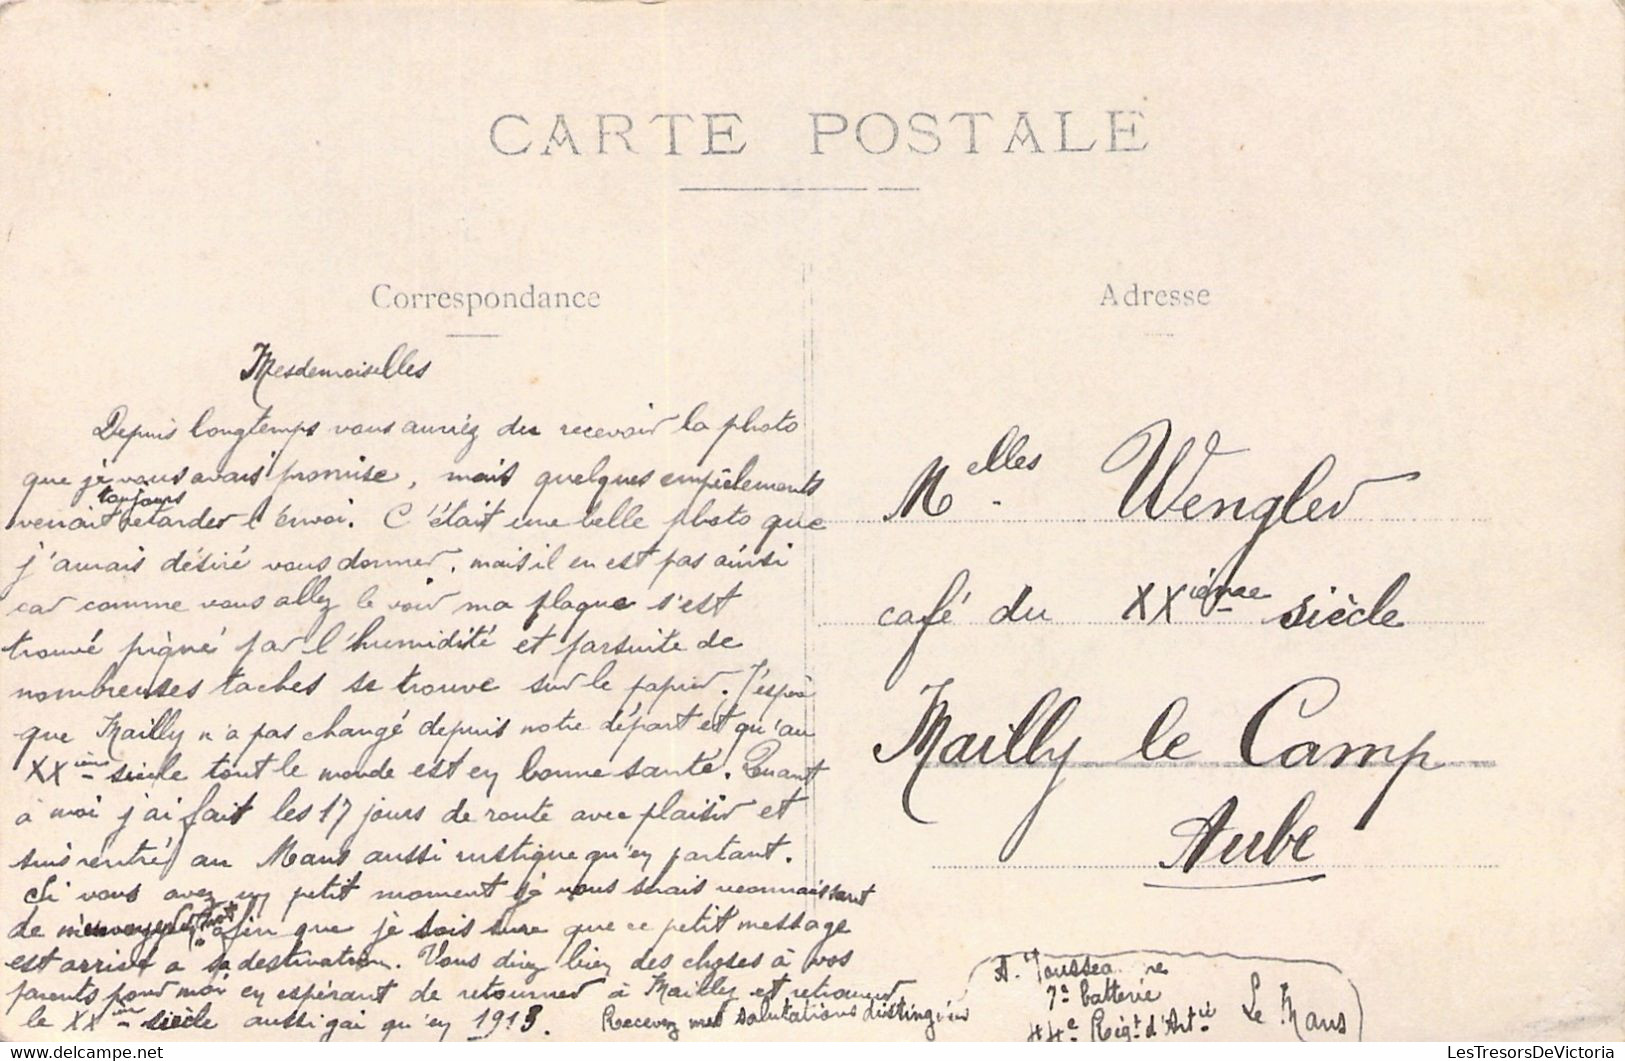 CARTE POSTALE
Correspondance
Mesdemoiselles
Depuis longtemps vous auriez du recevoir la photo
que je vous avais promise, mais quelques empiêlements
toujours
venait retarder l'envoi. C'était une belle photo que
j'aurais désiré vous donner, mais il en est pas ainsi
car comme vous allez le voir ma plaque s'est
trouvé piqué par l'humidité et parsuite de
nombreuses taches se trouve sur le papier. J'espère
que Mailly n'a pas changé depuis notre départ et qu'au
XXième siècle tout le monde est en bonne santé. Quant
à moi j'ai fait les 17 jours de route avec plaisir et
suis rentré au Mans aussi rustique qu'en partant.
Si vous avez un petit moment je vous serais reconnaissant
de m'envoyer un mot afin que je sois sure que ce petit message
est arrivé a sa destination. Vous direz bien des choses à vos
parents pour moi en espérant de retourner à Mailly et retrouver
le XXième siècle aussi gai qu'en 1913. Recevez mes salutations distinguées
Adresse
Melles Wengler
café du XXième siècle
Mailly le Camp
Aube
A. Toussea
7e batterie
44e Régt d'Artie Le Mans
LesTresorsDeVictoria.com
LesTresorsDeVictoria